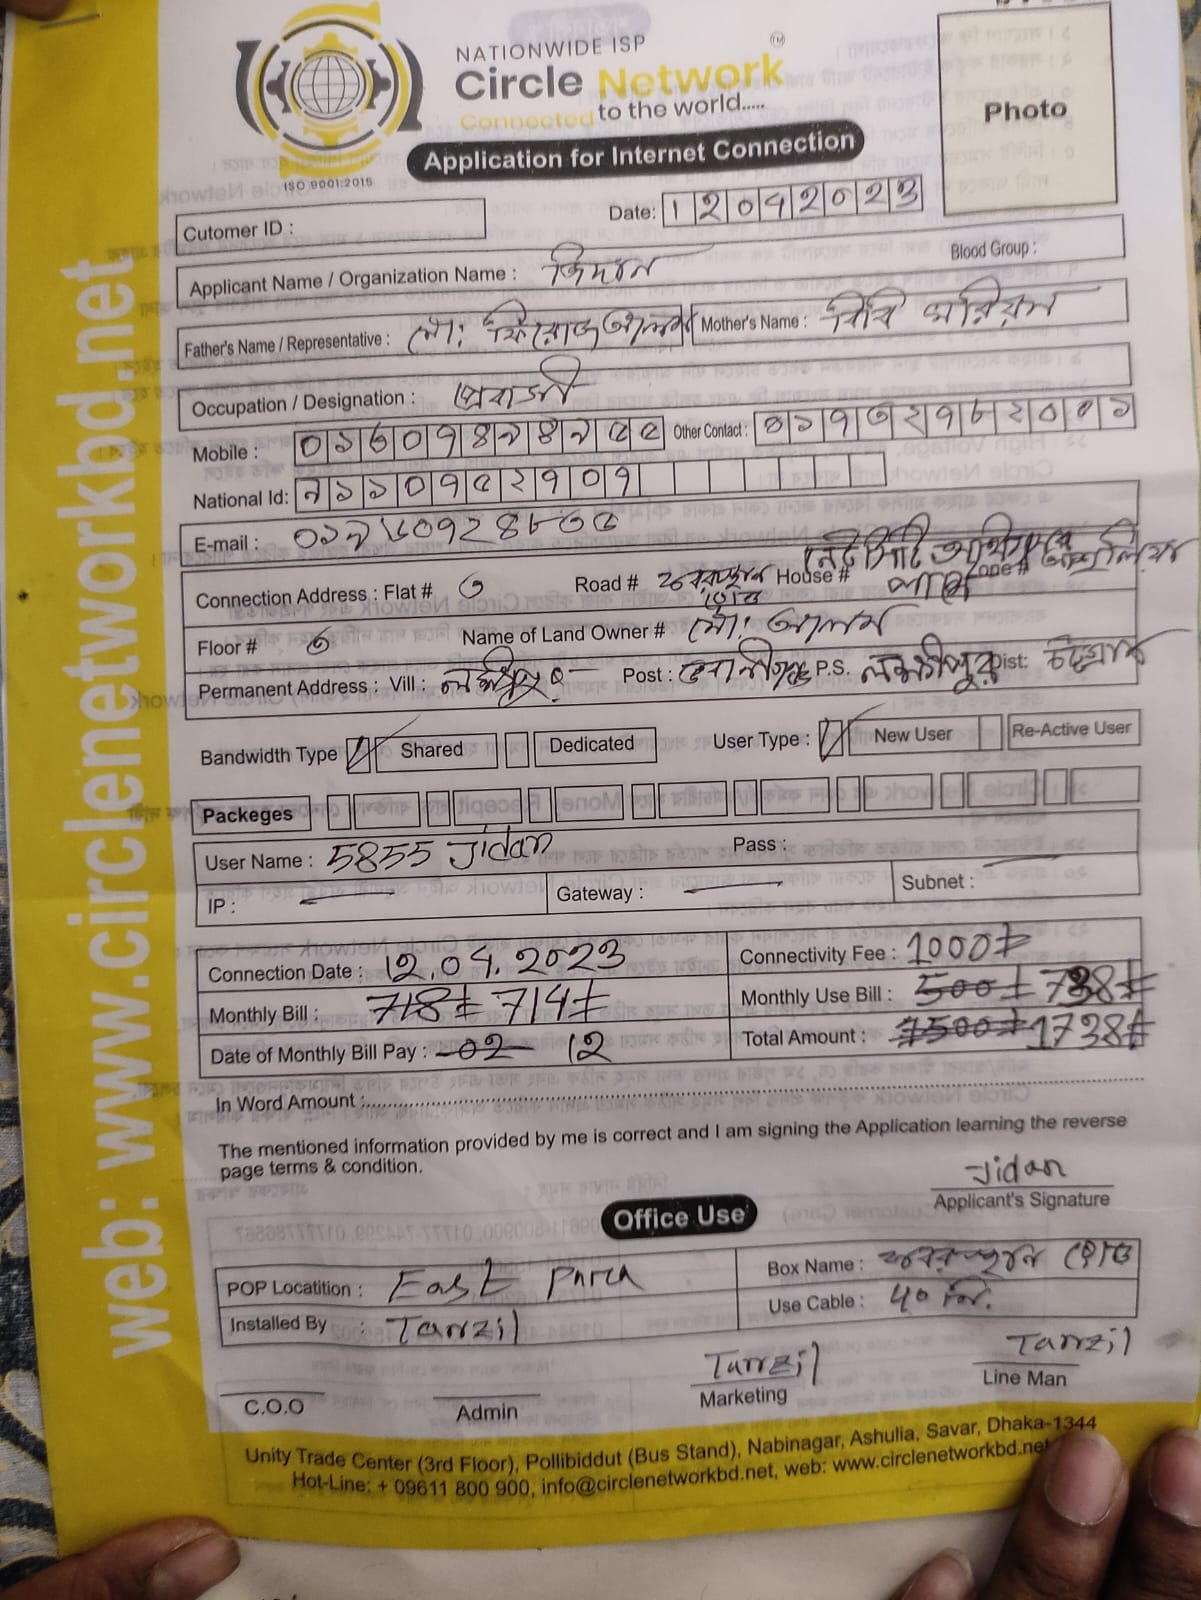 NATIONWIDE ISP
Circle Network TM
Connected to the world.....
ISO 9001:2015
Application for Internet Connection
Photo
Cutomer ID :
Date: 12042023
Applicant Name / Organization Name : জিদান
Blood Group :
Father's Name / Representative : মো: ফিরোজ আলম
Mother's Name : বিবি মরিয়ম
Occupation / Designation : প্রবাসী
Mobile :
Other Contact :
National Id: ৯১১০৭৫২৭০৭
E-mail :
Connection Address : Flat # ৩ Road # কবরস্থান রোড House # Zone #
Floor # ৩ Name of Land Owner # মো: আলম
Permanent Address : Vill : লক্ষীপুর Post : P.S. লক্ষীপুর Dist: চট্টগ্রাম
Bandwidth Type Shared Dedicated User Type : New User Re-Active User
Packeges
User Name : 5855 Jidan Pass :
IP : Gateway : Subnet :
Connection Date : 12.04.2023 Connectivity Fee : 1000৳
Monthly Bill : 718৳ 714৳ Monthly Use Bill : 500৳ 738৳
Date of Monthly Bill Pay : 02 12 Total Amount : 1500৳ 1738৳
In Word Amount :
The mentioned information provided by me is correct and I am signing the Application learning the reverse
page terms & condition.
Jidan
Applicant's Signature
Office Use
POP Locatition : East Para Box Name : কবরস্থান রোড
Installed By : Tanzil Use Cable : ৭০ মি.
Tanzil
Tanzil
C.O.O Admin Marketing Line Man
Unity Trade Center (3rd Floor), Pollibiddut (Bus Stand), Nabinagar, Ashulia, Savar, Dhaka-1344
Hot-Line: + 09611 800 900, info@circlenetworkbd.net, web: www.circlenetworkbd.net
web: www.circlenetworkbd.net